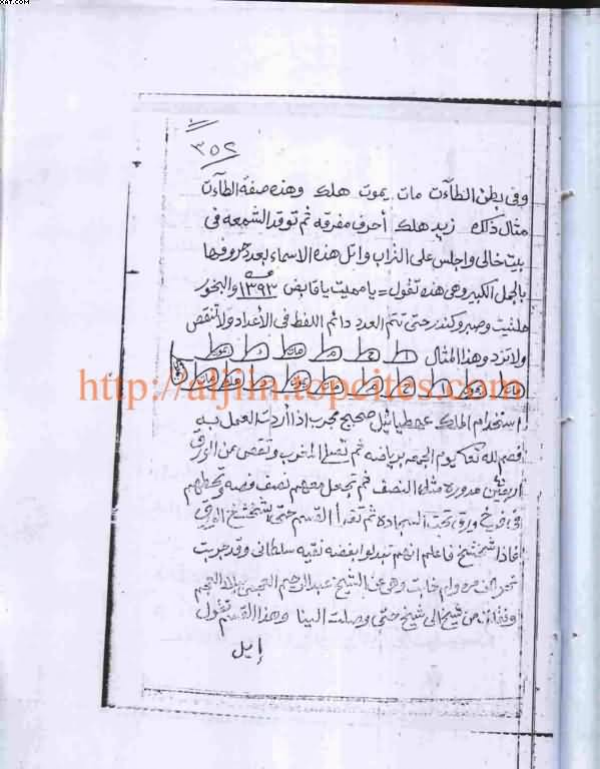 XAT.COM
٣٥٢
وفى بطن الطاآت مات يموت هلك وهذه صفة الطاآت
مثال ذلك زيد هلك أحرف مفرقه ثم توقد الشمعه فى
بيت خالى واجلس على التراب واتل هذه الاسماء بعدد حروفها
بالجمل الكبير وهى هذه تقول = يا مميت يا قابض ١٣٩٣ والبخور
حلتيت وصبر وكندر حتى تتم العدد دائم اللفظ فى الأعداد ولا تنقص
ولا تزد وهذا المثال
http://aljiin.topcites.com
استخدام الملك صحيح مجرب اذا أردت العمل به
فصم لله تعا يوم الجمعه برياضه ثم تصلى المغرب وتقص من الورق
مدوره مثل النصف ثم تجعل معهم نصف فضه وتحطهم
فى ورق تحت السجادة ثم تقرأ القسم حتى يشخشخ الورق
فاذا شخشخ فاعلم انهم تبدلوا بفضه نقيه سلطانى وقد جربت
وهى عن الشيخ عبد الرحيم ببلاد العجم
من شيخ الى شيخ حتى وصلت الينا وهذا القسم تقول
إيل